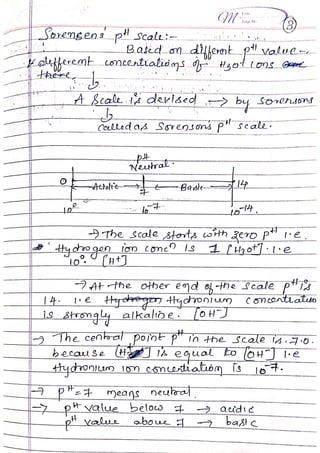 ③
Sorensens' pH scale:-
Based on different pH value -
different concentrations of H3O+ ions
there.
A Scale is devised → by Sorensons
called as Sorenson's pH scale.
pH
Neutral.
0 Acidic 7 Basic 14
10° 10-7 10-14.
→ The scale starts with zero pH i.e.
Hydrogen ion concn is 1 [H3O+] i.e
10°. [H+]
→ At the other end of the scale pH is
14. i.e Hydronium concentration
is strongly alkaline. [OH-]
→ The central point pH in the scale is 7.0.
because [H+] is equal to [OH-] i.e
Hydronium ion concentration is 10-7.
→ pH=7 means neutral.
→ pH value below 7 → acidic
pH value above 7 → basic